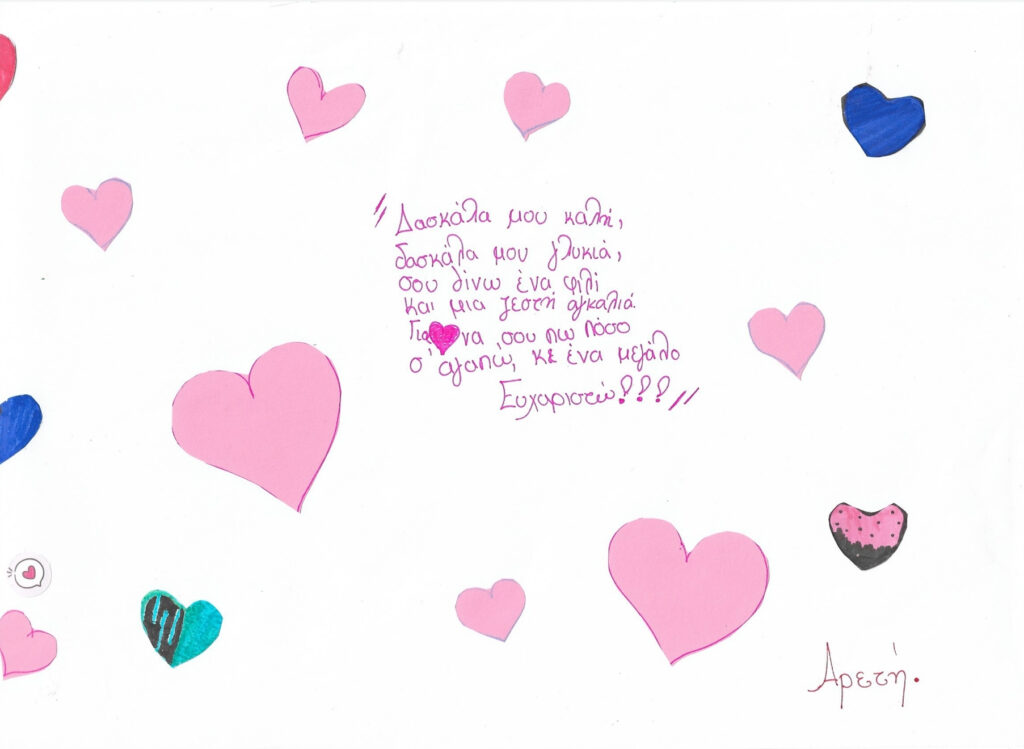 "Δασκάλα μου καλή,
δασκάλα μου γλυκιά,
σου δίνω ένα φιλί
και μια ζεστή αγκαλιά
Για να σου πω πόσο
σ' αγαπώ, κε ένα μεγάλο
Ευχαριστώ!!!"
Αρετή.